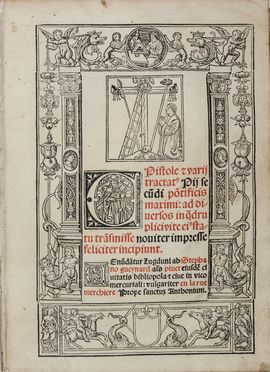 EPistole & varij
tractatꝰ Pij se
cūdi pōtificis
maximi: ad di
uersos in q̄dru
plici vite eiꝰ sta
tu trāsmisse nouiter impresse
feliciter incipiunt.
Uenūdātur Lugduni ab Stepha
no gueynard als pinet eiusdē ci
uitatis bibliopola & ciue in vico
mercuriali: vulgariter en la rue
merchiere Prope sanctus Anthonium.